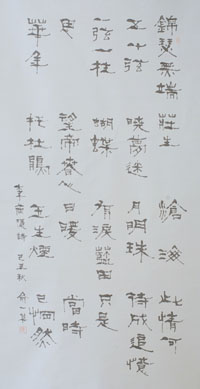 錦瑟無端
五十弦
一弦一柱
思
華年
莊生
曉夢迷
蝴蝶
望帝春心
托杜鵑
滄海
月明珠
有淚藍田
日暖
玉生煙
此情可
待成追憶
只是
當時
已惘然
李商隱詩 己丑秋